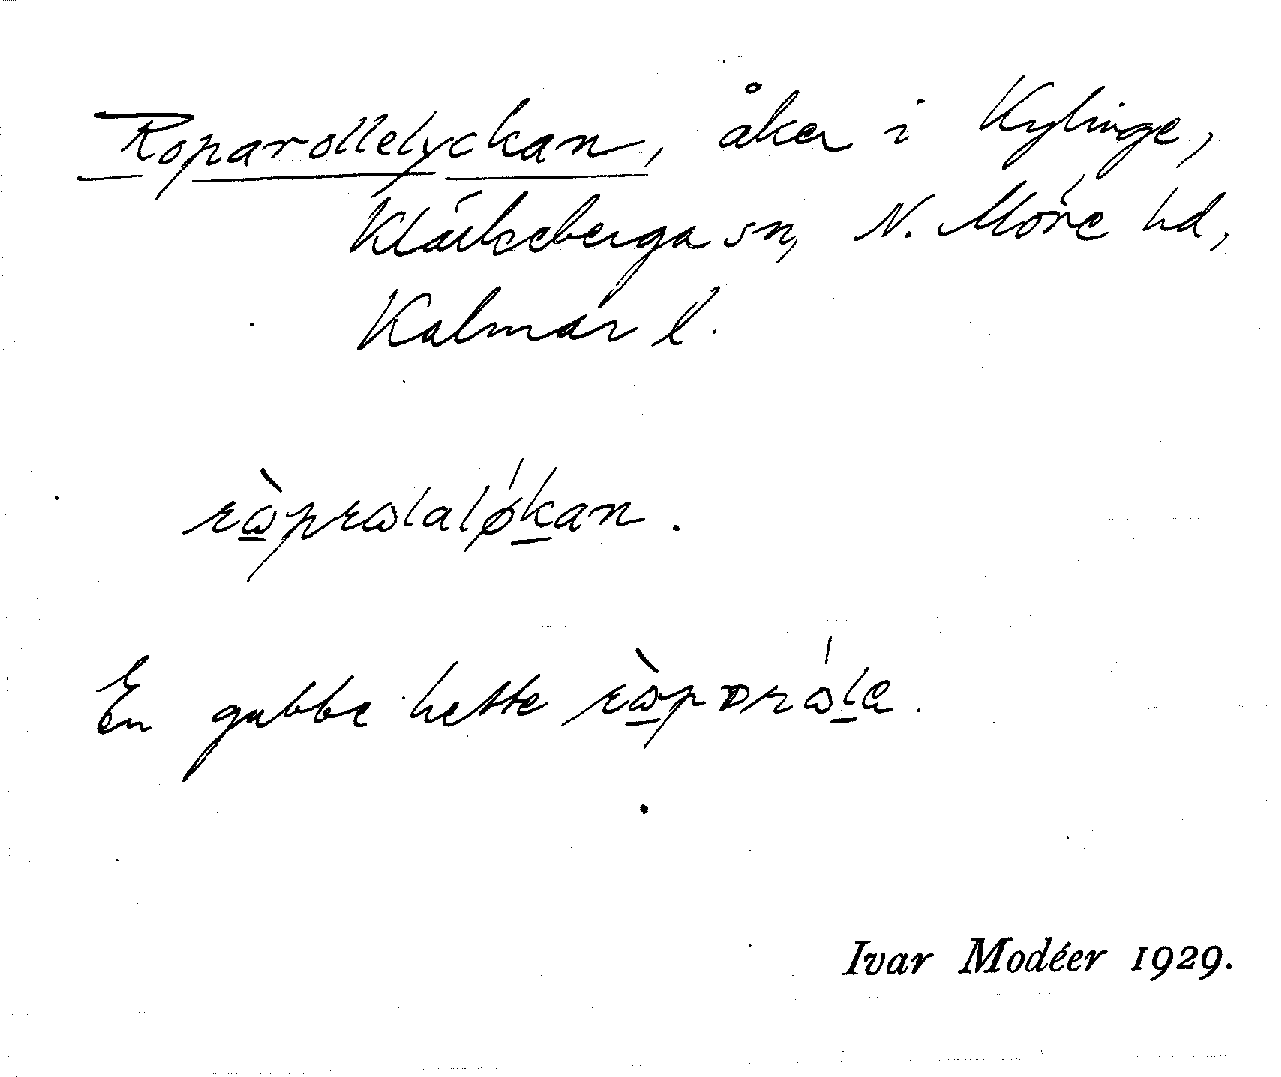 Roparollelyckan, åker i Kylinge,
Kläckeberga sn, N. Möre hd,
Kalmar l.
rὼprωlaløkan.
En gubbe hette rὼpɒrώla.
Ivar Modéer 1929.